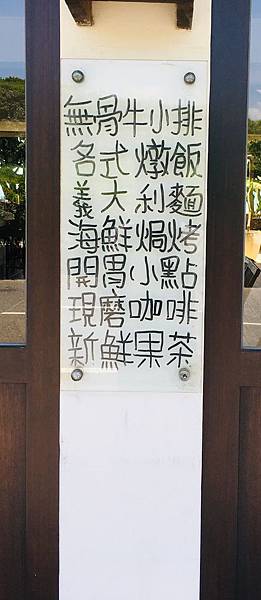 無骨牛小排
各式燉飯
義大利麵
海鮮焗烤
開胃小點
現磨咖啡
新鮮果茶